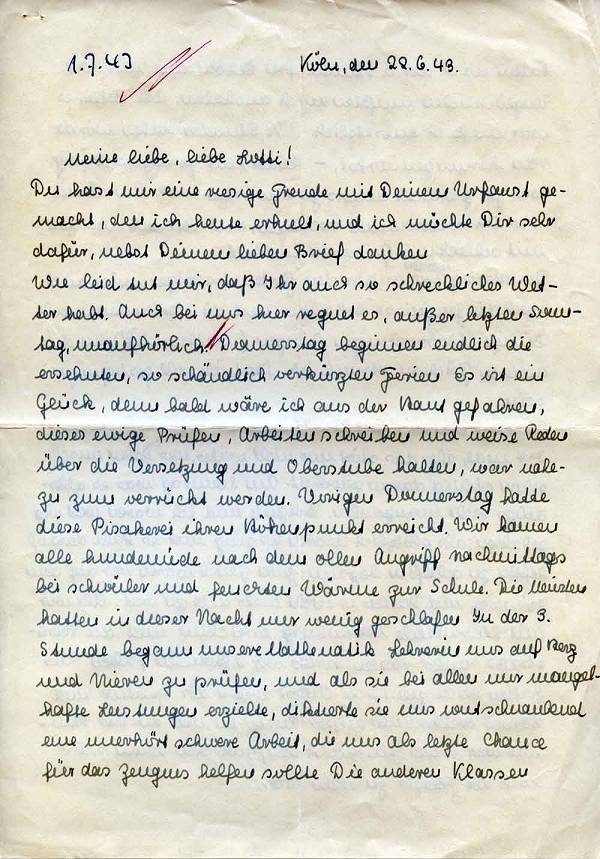 1.7.43
Köln, den 28.6.43.
Meine liebe, liebe Lotti!
Du hast mir eine riesige Freude mit Deinem Urfaust ge-
macht, den ich heute erhielt, und ich möchte Dir sehr
dafür, nebst Deinem lieben Brief danken
Wie leid tut mir, daß Ihr auch so schreckliches Wet-
ter habt. Auch bei uns hier regnet es, außer letzten Sams-
tag, unaufhörlich. Donnerstag beginnen endlich die
ersehnten, so schändlich verkürzten Ferien Es ist ein
Glück, denn bald wäre ich aus der Haut gefahren,
dieses ewige Prüfen, Arbeiten schreiben und weise Reden
über die Versetzung und Oberstube halten, war nahe-
zu zum verrückt werden. Vorigen Donnerstag hatte
diese Pisakerei ihren Höhenpunkt erreicht. Wir kamen
alle hundemüde nach dem ollen Angriff nachmittags
bei schwüler und feuchter Wärme zur Schule. Die Meisten
hatten in dieser Nacht nur wenig geschlafen In der 3.
Stunde begann unsere Mathematik Lehrerin uns auf Herz
und Nieren zu prüfen, und als sie bei allen nur mangel-
hafte Leistungen erzielte, diktierte sie uns wutschnaubend
eine unerhört schwere Arbeit, die uns als letzte Chance
für das Zeugnis helfen sollte Die anderen Klassen